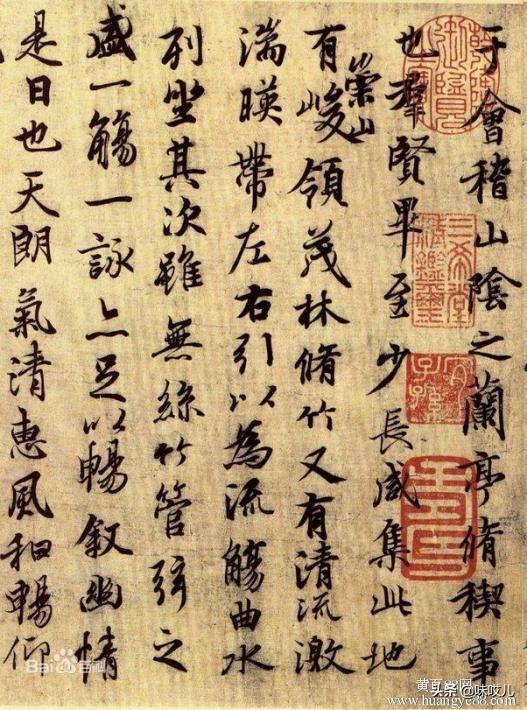 于會稽山陰之蘭亭脩稧事
也羣賢畢至少長咸集此地
有崇山峻領茂林脩竹又有清流激
湍暎帶左右引以為流觴曲水
列坐其次雖無絲竹管弦之
盛一觴一詠亦足以暢敘幽情
是日也天朗氣清惠風和暢仰
三希堂精鑑璽
宜子孫
Bai百科
头条 @味哎儿
www.huangye88.com